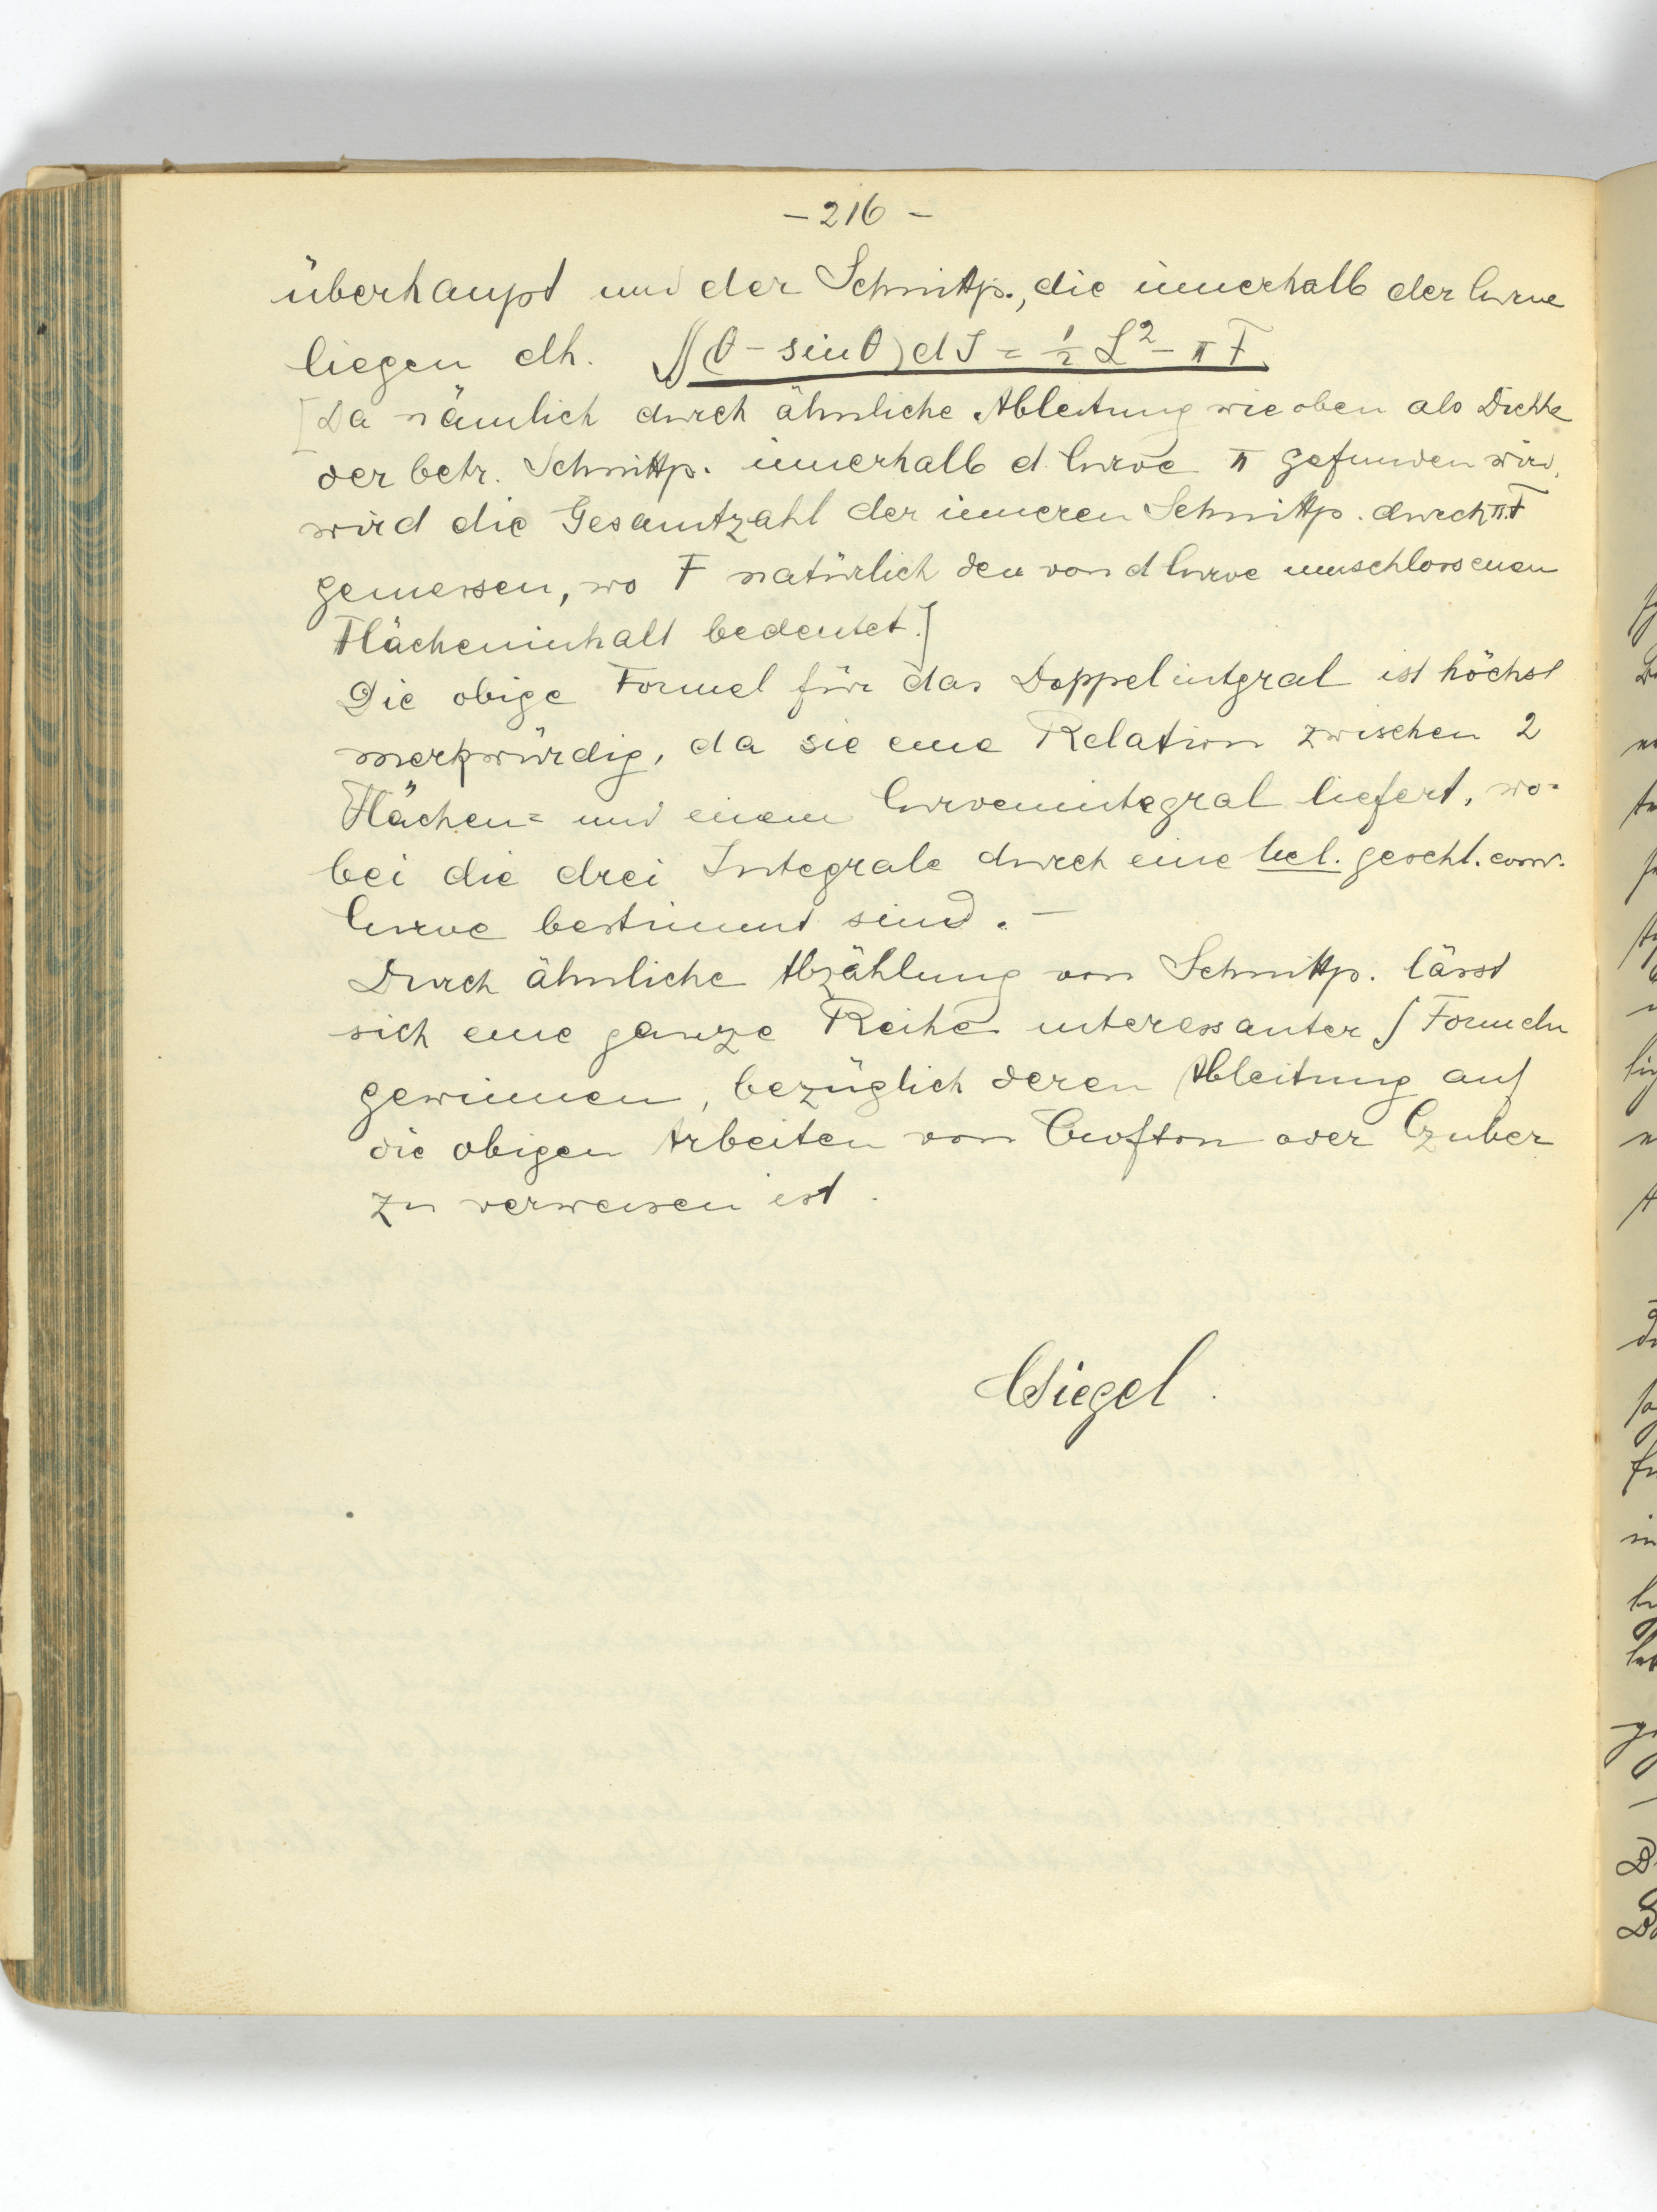 - 216 -
überhaupt und der Schnittp., die innerhalb der Curve
liegen dh. ∬(θ - sinθ)dJ = ½ L² - πF.
[Da nämlich durch ähnliche Ableitung wie oben als Dichte
der betr. Schnittp. innerhalb d. Curve π gefunden wird,
wird die Gesamtzahl der inneren Schnittp. durch πF
gemessen, wo F natürlich den von d Curve umschlossenen
Flächeninhalt bedeutet.]
Die obige Formel für das Doppelintgral ist höchst
merkwürdig, da sie eine Relation zwischen 2
Flächen= und einem Curvenintegral liefert, wo=
bei die drei Integrale durch eine bel. geschl. conv.
Curve bestimmt sind. —
Durch ähnliche Abzählung von Schnittp. lässt
sich eine ganze Reihe interessanter ∫ Formeln
gewinnen, bezüglich deren Ableitung auf
die obigen Arbeiten von Crofton oder Czuber
zu verweisen ist.